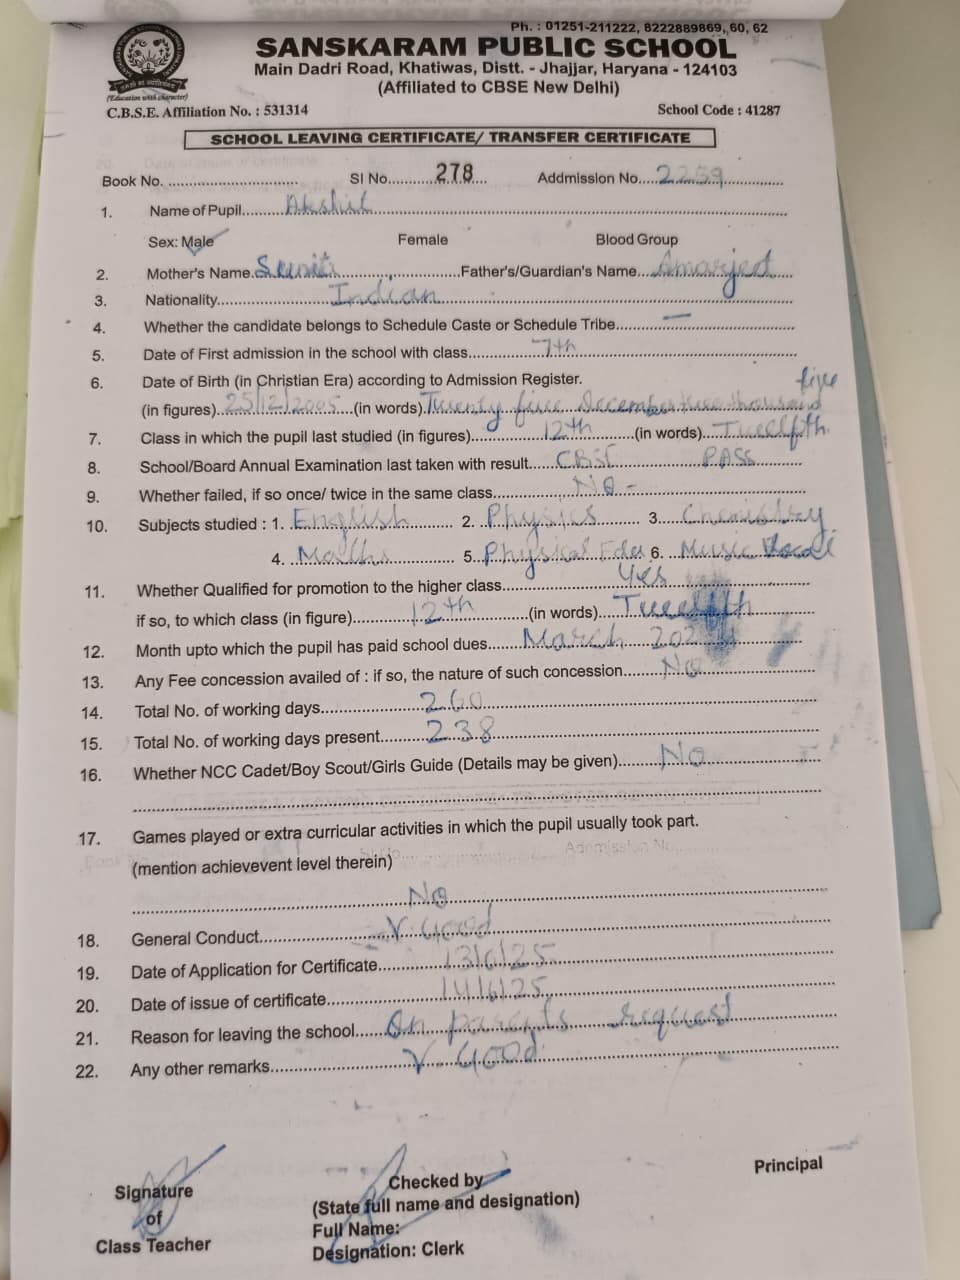 Ph. : 01251-211222, 8222889869, 60, 62
SANSKARAM PUBLIC SCHOOL
Main Dadri Road, Khatiwas, Distt. - Jhajjar, Haryana - 124103
(Affiliated to CBSE New Delhi)
(Education with character)
C.B.S.E. Affiliation No. : 531314 School Code : 41287
SCHOOL LEAVING CERTIFICATE/ TRANSFER CERTIFICATE
Book No. .............................. Sl No..........278... Addmission No....2259..............
1. Name of Pupil.........Akshit..............................
Sex: Male Female Blood Group
2. Mother's Name.Sunita..............................Father's/Guardian's Name....Amarjeet....
3. Nationality..........................Indian..............................
4. Whether the candidate belongs to Schedule Caste or Schedule Tribe..........—..............
5. Date of First admission in the school with class..............7th..............................
6. Date of Birth (in Christian Era) according to Admission Register.
(in figures)..25/12/2005....(in words).Twenty five December two thousand five
7. Class in which the pupil last studied (in figures)................12th.........(in words)..Twelfth.
8. School/Board Annual Examination last taken with result......CBSE PASS..........
9. Whether failed, if so once/ twice in the same class...................NO -..............................
10. Subjects studied : 1. .English........... 2. .Physics......... 3. ...Chemistry
4. ..Maths............... 5..Physical Edu 6. ..Music Vocal
11. Whether Qualified for promotion to the higher class.........................Yes..............................
if so, to which class (in figure)..............12th..............(in words)...Twelfth
12. Month upto which the pupil has paid school dues.......March 202
13. Any Fee concession availed of : if so, the nature of such concession.........No..............................
14. Total No. of working days........................260..............................
15. Total No. of working days present...........238..............................
16. Whether NCC Cadet/Boy Scout/Girls Guide (Details may be given).........No..............
17. Games played or extra curricular activities in which the pupil usually took part.
(mention achievevent level therein)
No
18. General Conduct..............................V. Good..............................
19. Date of Application for Certificate..............13/6/25..............................
20. Date of issue of certificate........................14/6/25..............................
21. Reason for leaving the school......On parents request
22. Any other remarks..............................V Good..............................
Principal
Signature Checked by
of (State full name and designation)
Class Teacher Full Name:
Designation: Clerk